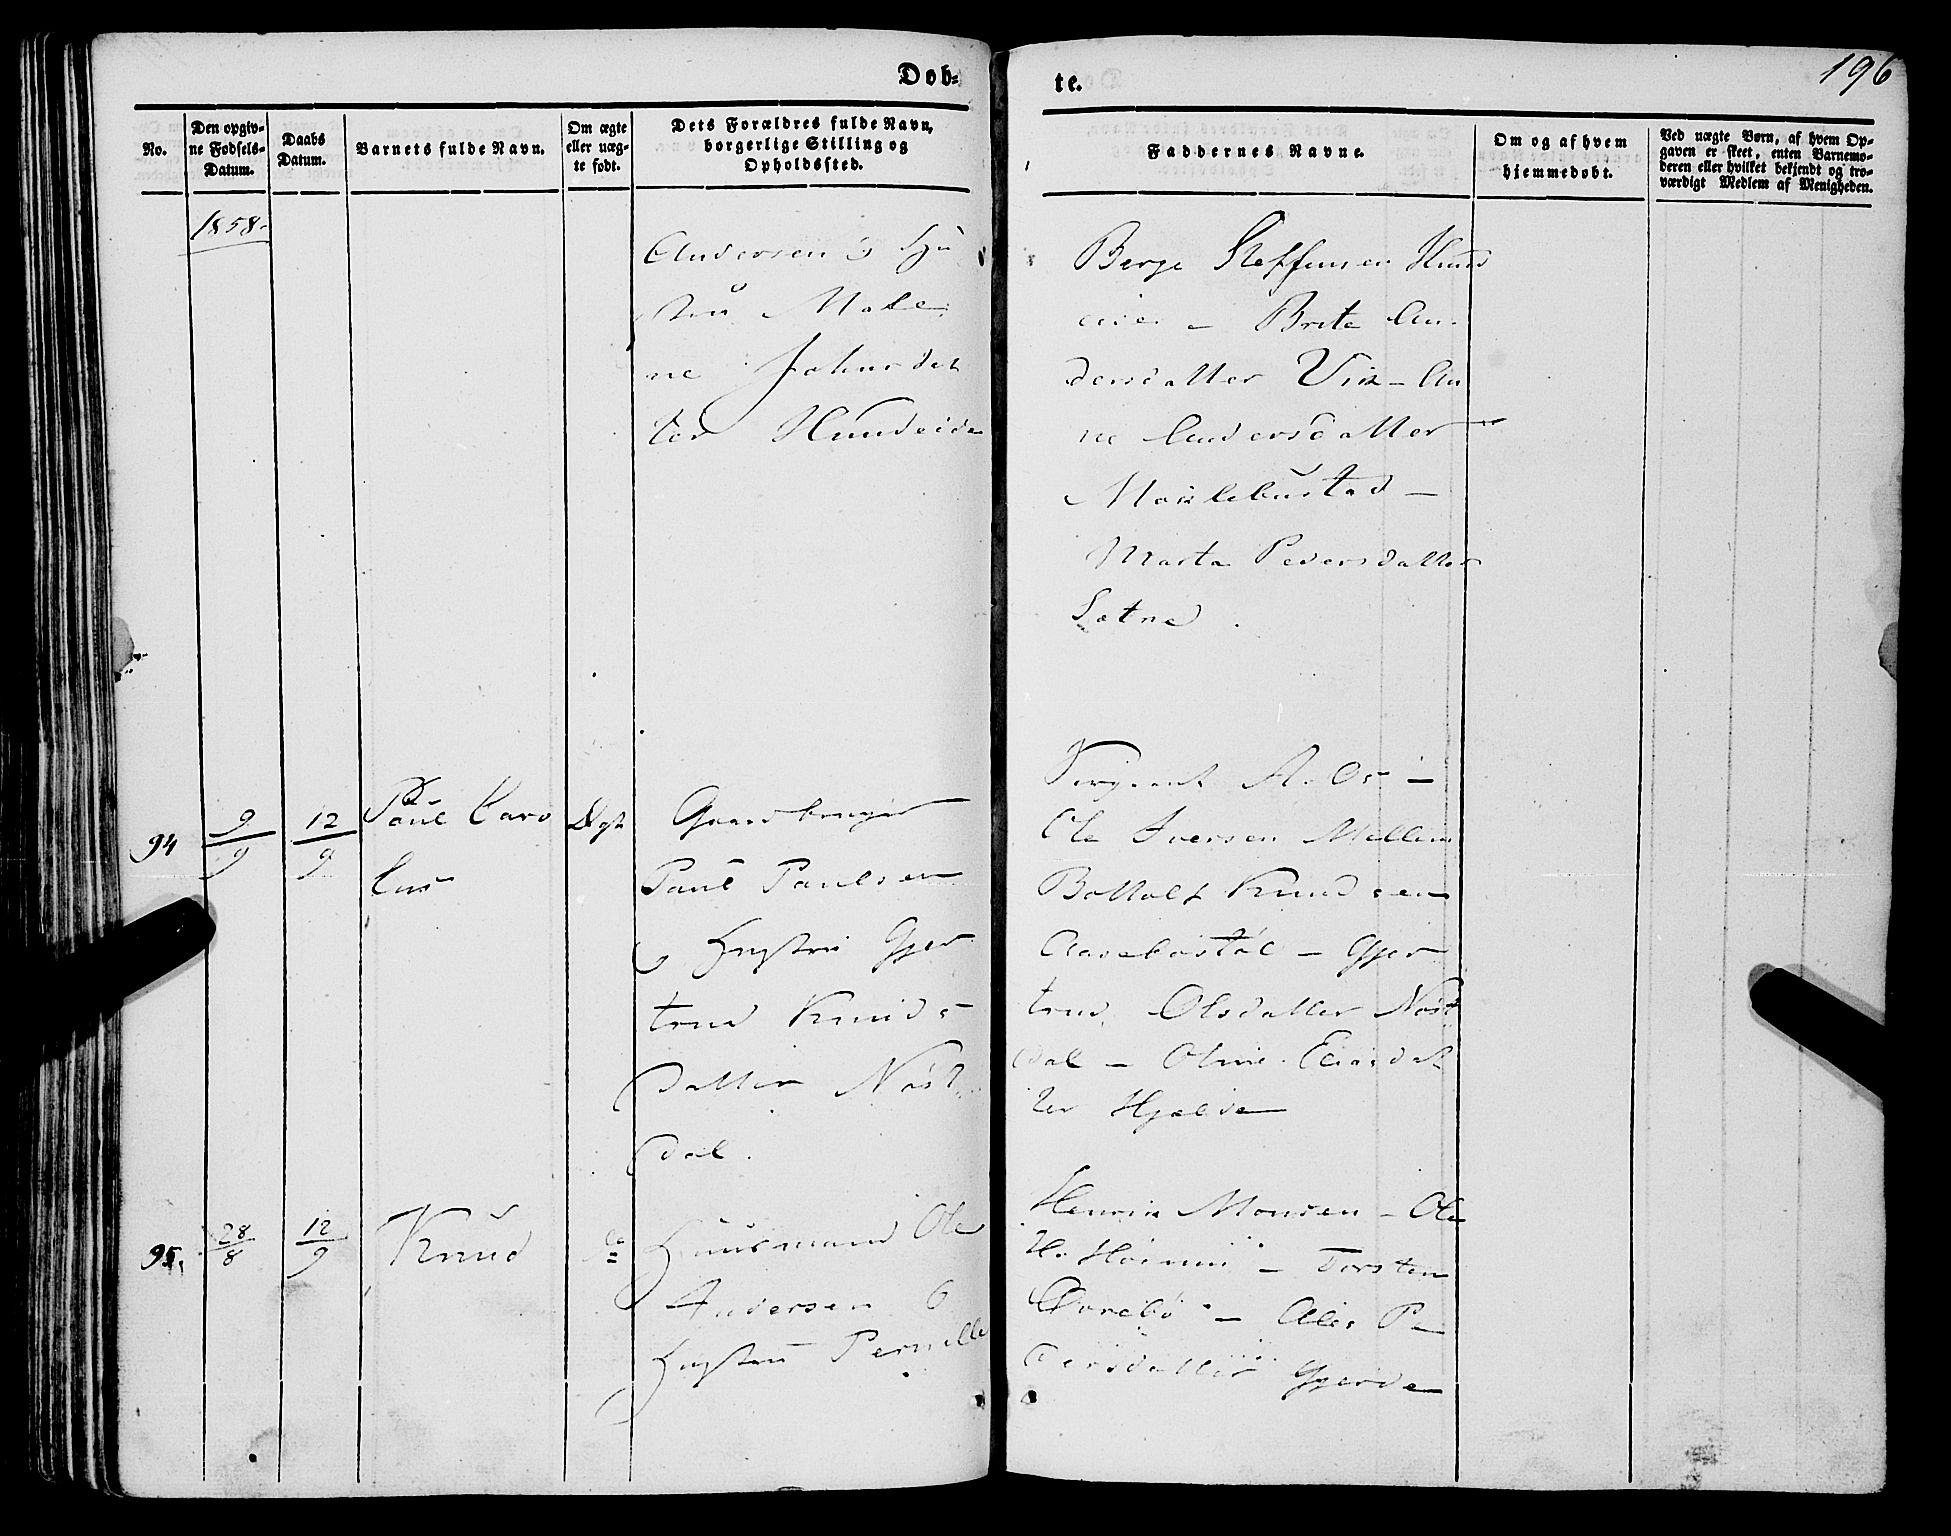 Døb-
te.
196
No.
Den opgiv-
ne Fødsels-
Datum.
Daabs
Datum.
Barnets fulde Navn.
Om ægte
eller uæg-
te født.
Dets Forældres fulde Navn,
borgerlige Stilling og
Opholdssted.
Faddernes Navne.
Om og af hvem
hjemmedøbt.
Ved uægte Børn, af hvem Op-
gaven er skeet, enten Barnemo-
deren eller hvilket bekjendt og tro-
værdigt Medlem af Menigheden.
1858.
Andersen & Hu
stru Male
ne Johnsdat
ter Hundeide
Berge Steffensen Hund
eide - Brite An
dersdatter Vik - An
ne Andersdatter
Myklebustad -
Marta Pedersdatter
Sætne
94
9/9
12/9
Paul Caro
lus
Ægte
Gaardbruger
Paul Paulsen
& Hustru Gjer
trud Knuds
datter Nøst
dal.
Sergeant A.
Ole Iversen Mellem
Bottolf Knudsen
Aasebøstøl - Gjer
trud Olsdatter Nøst
dal - Oline Eliasdat
ter Hjelde
95.
28/8
12/9
Knud
Huusmand Ole
Andersen &
Hustru Pernille
Henrik Monsen - Ole
H. - Torsten
Øvrebø - Pe
dersdatter Gjerde